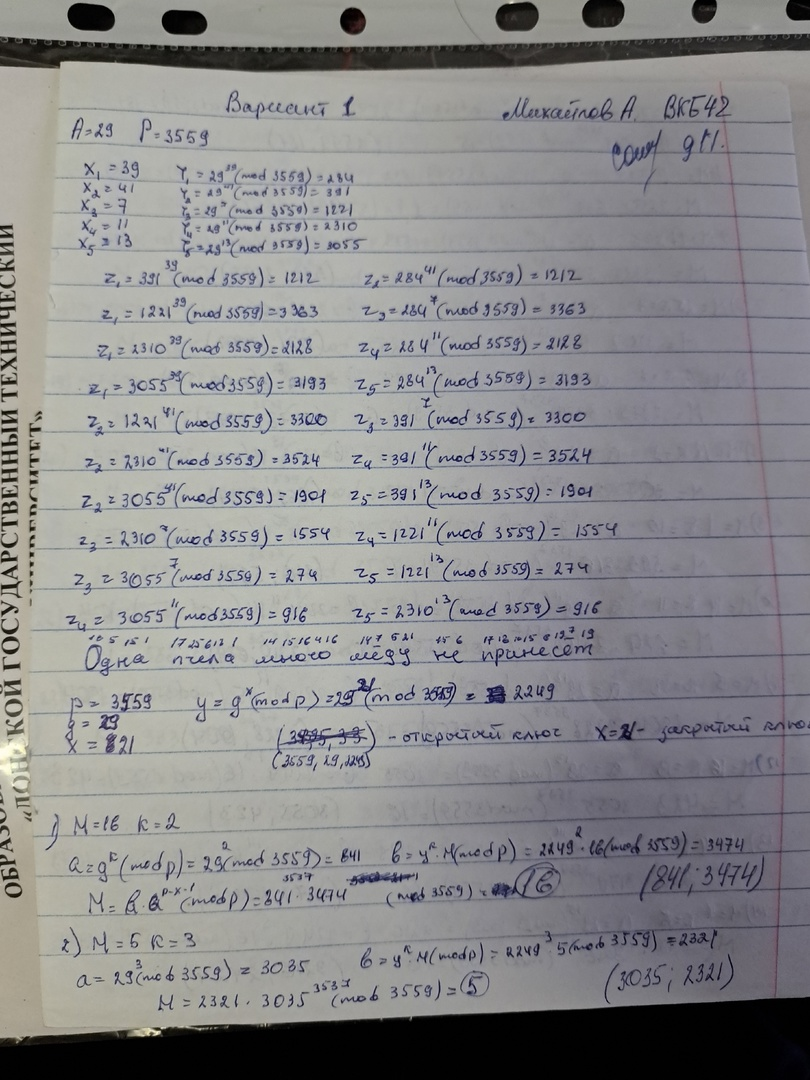 Вариант 1 Михайлов А. ВКБ42
A=29 P=3559
X₁ = 39 Y₁ = 29³⁹(mod 3559) = 284
X₂ = 41 Y₂ = 29⁴¹(mod 3559) = 391
X₃ = 7 Y₃ = 29⁷(mod 3559) = 1221
X₄ = 11 Y₄ = 29¹¹(mod 3559) = 2310
X₅ = 13 Y₅ = 29¹³(mod 3559) = 3055
Z₁ = 391³⁹(mod 3559) = 1212 Z₂ = 284⁴¹(mod 3559) = 1212
Z₁ = 1221³⁹(mod 3559) = 3363 Z₃ = 284⁷(mod 3559) = 3363
Z₁ = 2310³⁹(mod 3559) = 2128 Z₄ = 284¹¹(mod 3559) = 2128
Z₁ = 3055³⁹(mod 3559) = 3193 Z₅ = 284¹³(mod 3559) = 3193
Z₂ = 1221⁴¹(mod 3559) = 3300 Z₃ = 391⁷(mod 3559) = 3300
Z₂ = 2310⁴¹(mod 3559) = 3524 Z₄ = 391¹¹(mod 3559) = 3524
Z₂ = 3055⁴¹(mod 3559) = 1901 Z₅ = 391¹³(mod 3559) = 1901
Z₃ = 2310⁷(mod 3559) = 1554 Z₄ = 1221¹¹(mod 3559) = 1554
Z₃ = 3055⁷(mod 3559) = 274 Z₅ = 1221¹³(mod 3559) = 274
Z₄ = 3055¹¹(mod 3559) = 916 Z₅ = 2310¹³(mod 3559) = 916
Одна пчела много мёду не принесёт
p = 3559 y = gˣ(mod p) = 29²¹(mod 3559) = 2249
g = 29
x = 21 - открытый ключ x=21 - закрытый ключ
(3559, 29, 2249)
1) M=16 k=2
a = gᵏ(mod p) = 29²(mod 3559) = 841 b = yᵏ·M(mod p) = 2249²·16(mod 3559) = 3474
M = b·aᵖ⁻ˣ⁻¹(mod p) = 841³⁵³⁷·3474 (mod 3559) = 16 (841; 3474)
2) M=5 k=3
a = 29³(mod 3559) = 3035 b = yᵏ·M(mod p) = 2249³·5(mod 3559) = 2321
M = 2321·3035³⁵³⁷(mod 3559) = 5 (3035; 2321)
ДОНСКОЙ ГОСУДАРСТВЕННЫЙ ТЕХНИЧЕСКИЙ